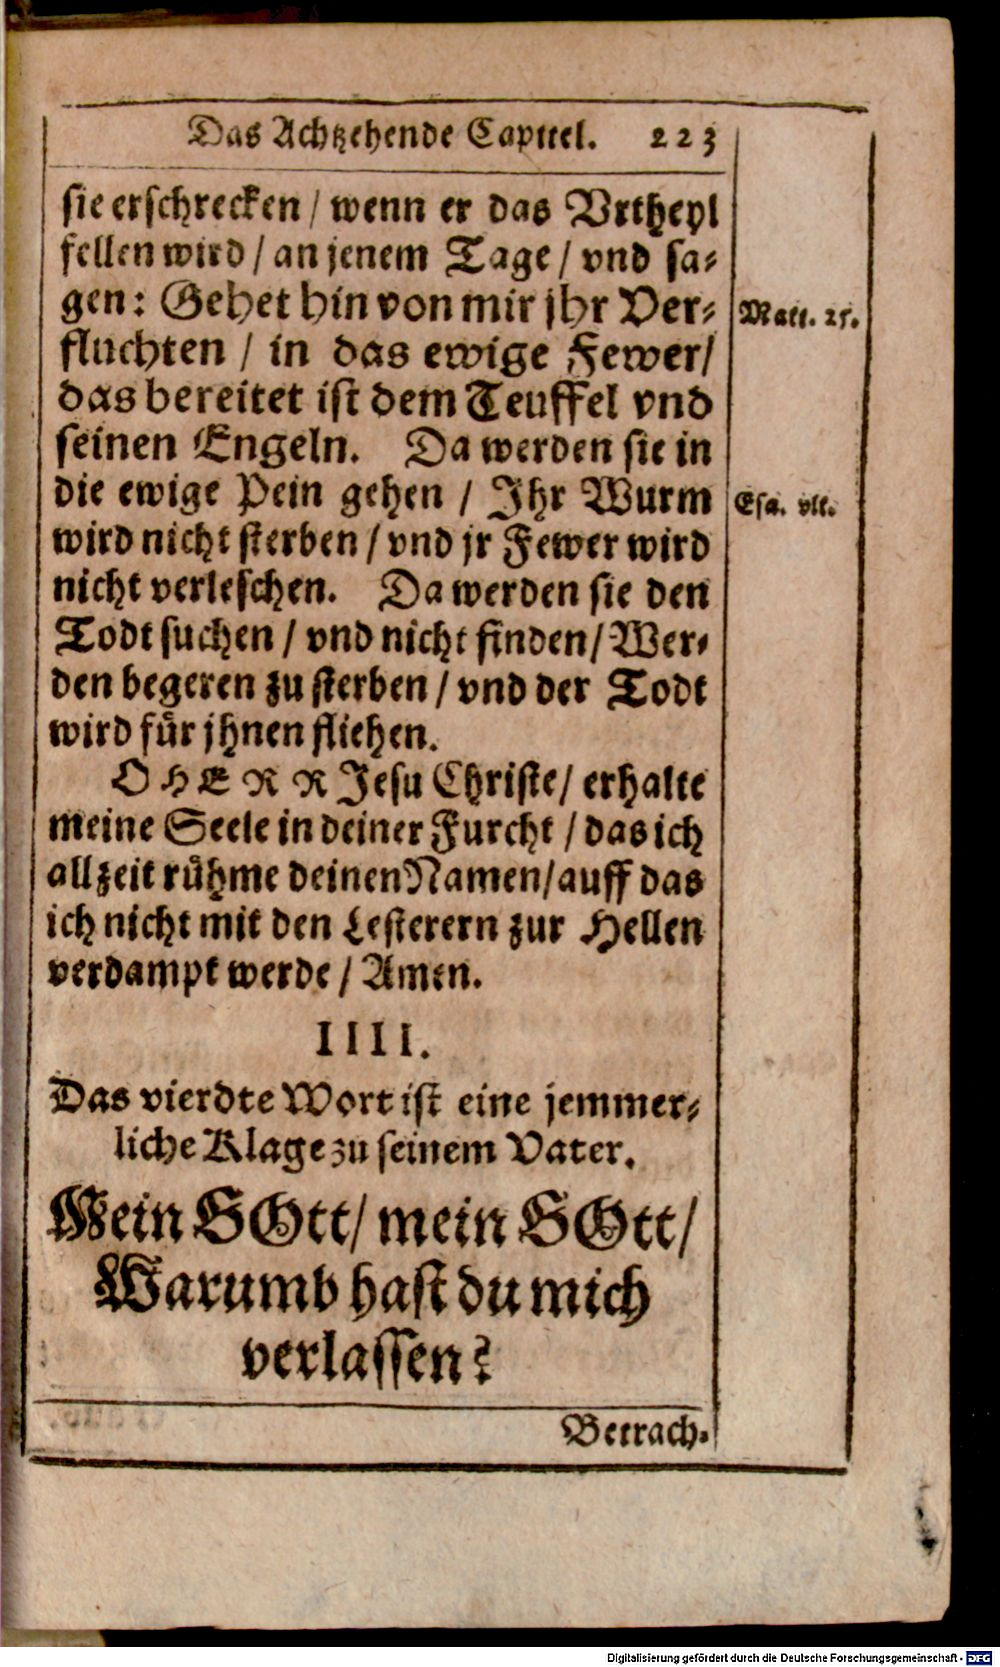 Das Achtzehende Capittel. 223
sie erschrecken / wenn er das Vrtheyl
fellen wird / an jenem Tage / vnd sa⸗
gen: Gehet hin von mir jhr Ver⸗
fluchten / in das ewige Fewer/
das bereitet ist dem Teuffel vnd
seinen Engeln. Da werden sie in
die ewige Pein gehen / Ihr Wurm
wird nicht sterben / vnd jr Fewer wird
nicht verleschen. Da werden sie den
Todt suchen / vnd nicht finden / Wer⸗
den begeren zu sterben / vnd der Todt
wird fuͤr jhnen fliehen.
O HERR Jesu Christe/ erhalte
meine Seele in deiner Furcht / das ich
allzeit ruͤhme deinen Namen/auff das
ich nicht mit den Lesterern zur Hellen
verdampt werde / Amen.
Matt. 25.
Esa. vlt.
IIII.
Das vierdte Wort ist eine jemmer⸗
liche Klage zu seinem Vater.
Mein GOtt/ mein GOtt/
Warumb hast du mich
verlassen?
Betrach⸗
Digitalisierung gefördert durch die Deutsche Forschungsgemeinschaft - DFG